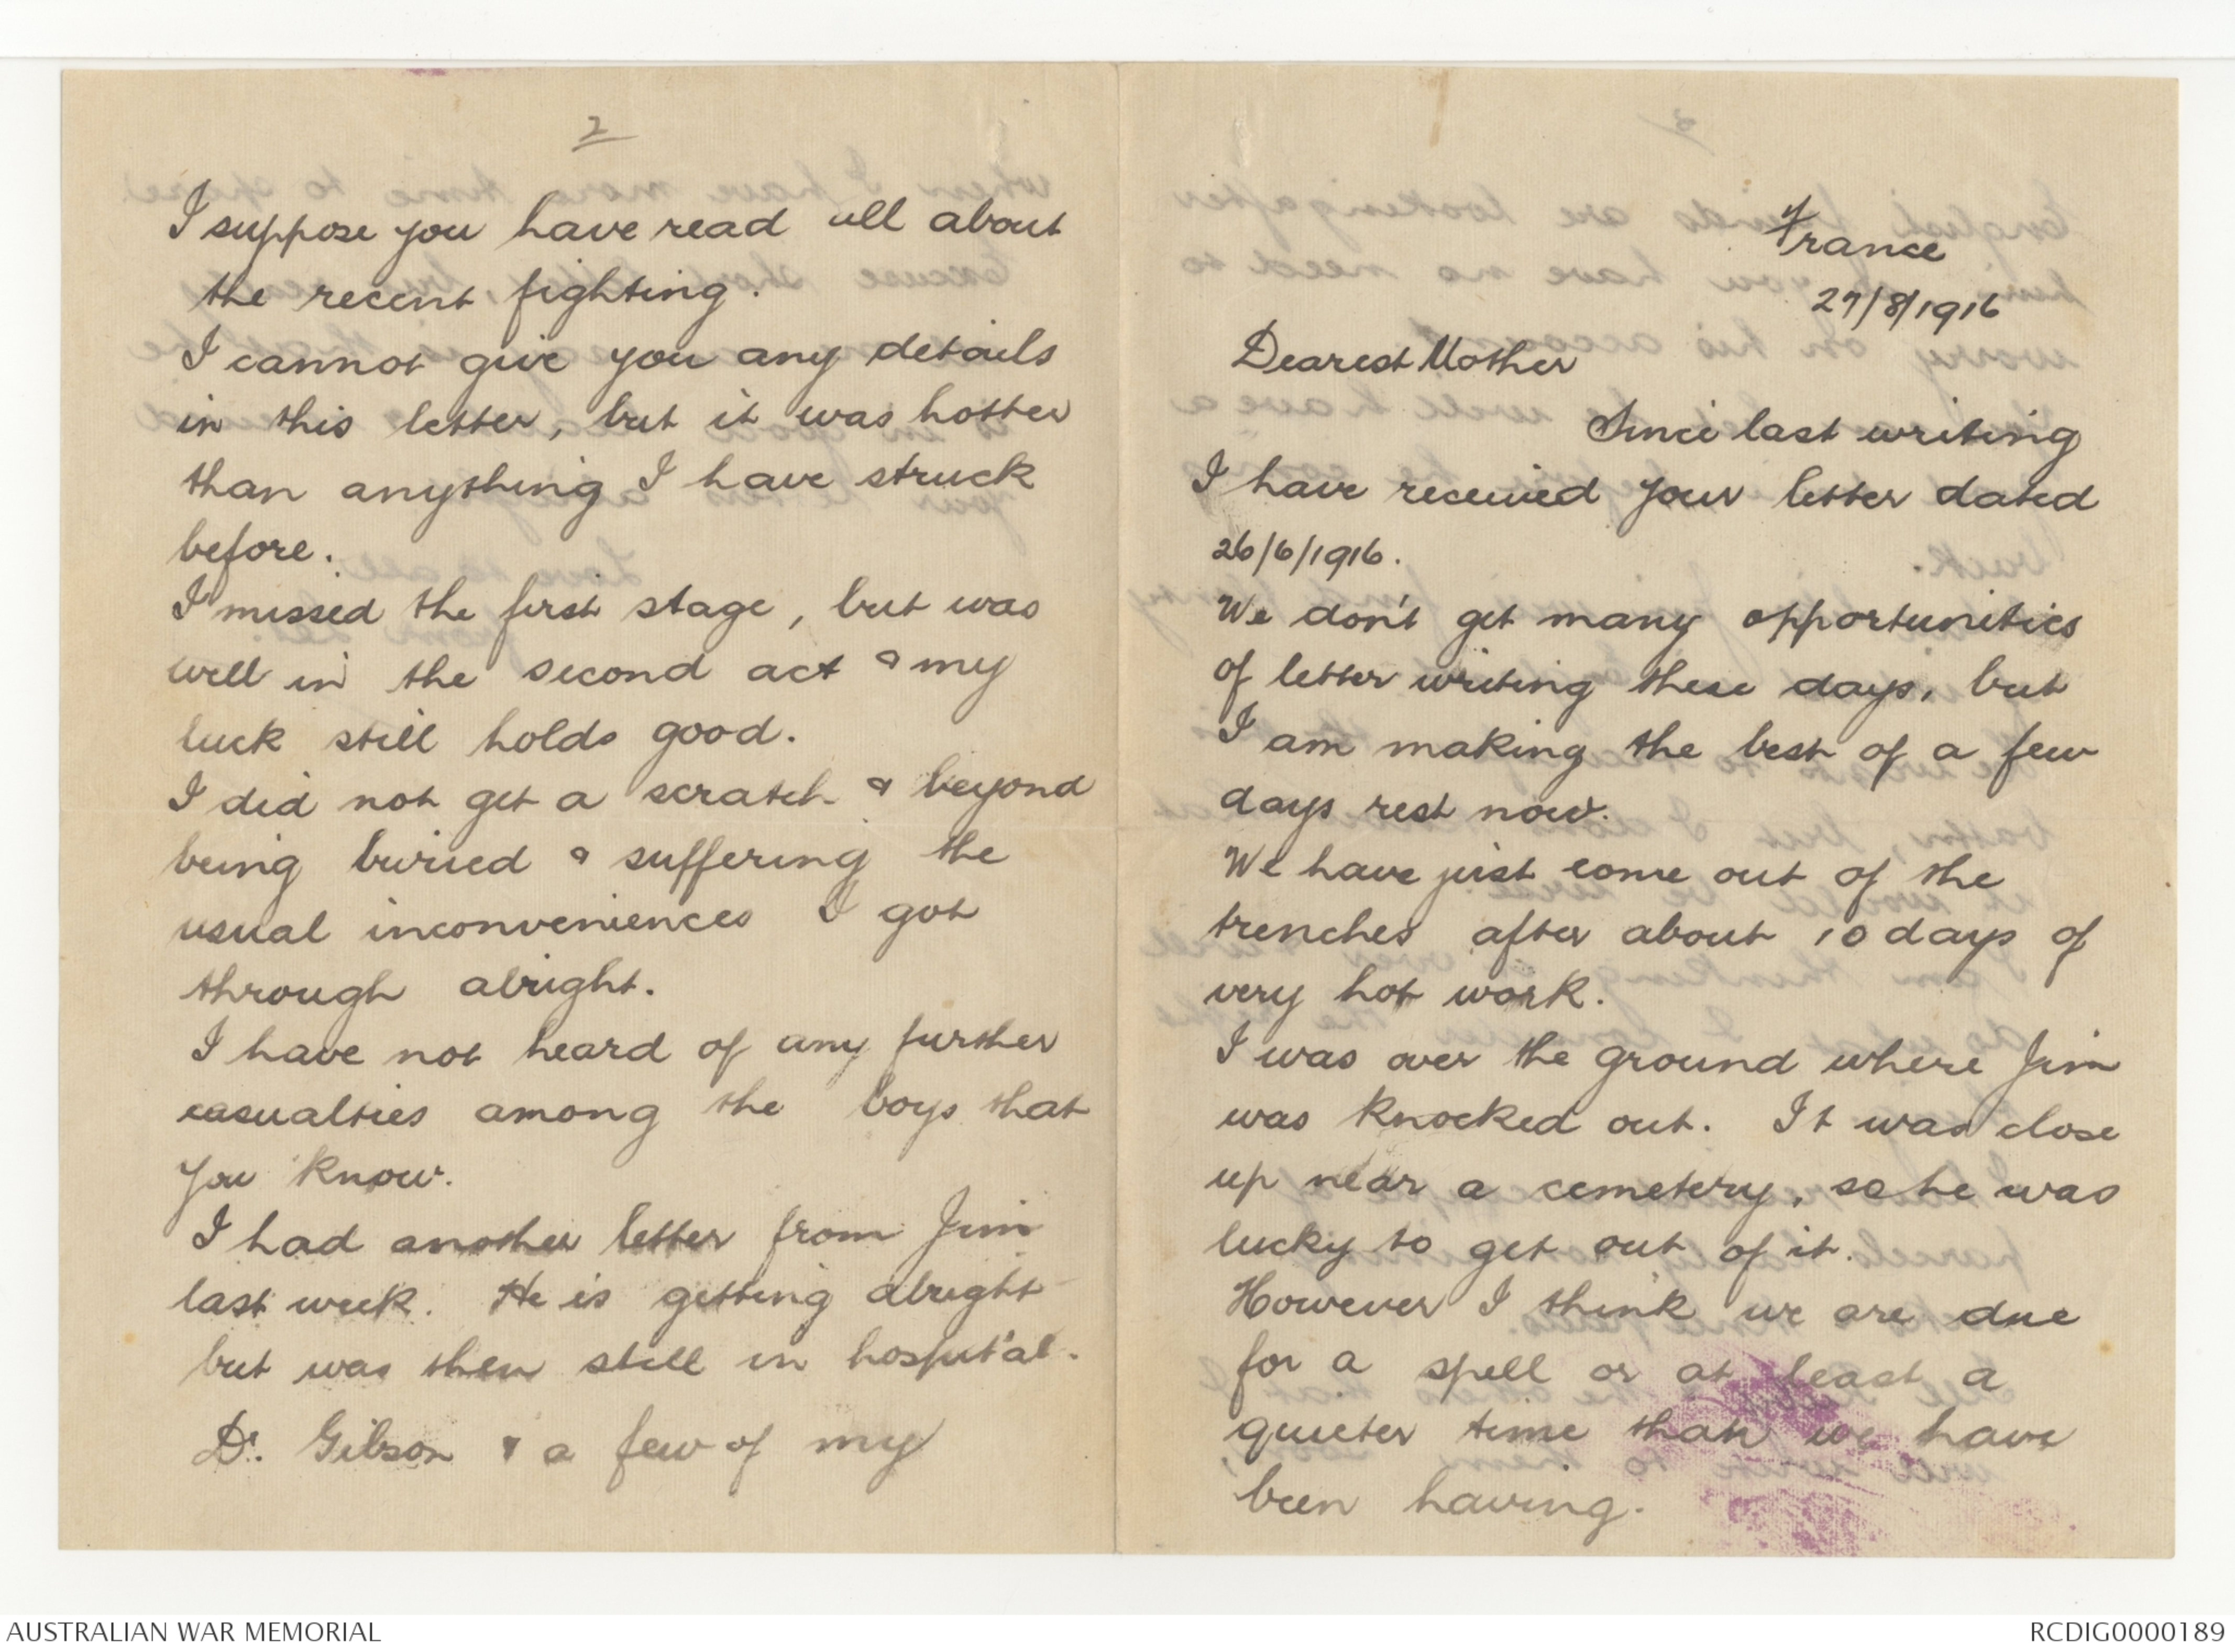 France
27/8/1916
Dearest Mother
Since last writing
I have received your letter dated
26/6/1916.
We don't get many opportunities
of letter writing these days, but
I am making the best of a few
days rest now.
We have just come out of the
trenches after about 10 days of
very hot work.
I was over the ground where Jim
was knocked out. It was close
up near a cemetery, so he was
lucky to get out of it.
However I think we are due
for a spell or at least a
quieter time than we have
been having.
2
I suppose you have read all about
the recent fighting.
I cannot give you any details
in this letter, but it was hotter
than anything I have struck
before.
I missed the first stage, but was
well in the second act & my
luck still holds good.
I did not get a scratch & beyond
being buried & suffering the
usual inconveniences I got
through alright.
I have not heard of any further
casualties among the boys that
you know.
I had another letter from Jim
last week. He is getting alright
but was then still in hospital.
Dr. Gibson & a few of my
AUSTRALIAN WAR MEMORIAL
RCDIG0000189